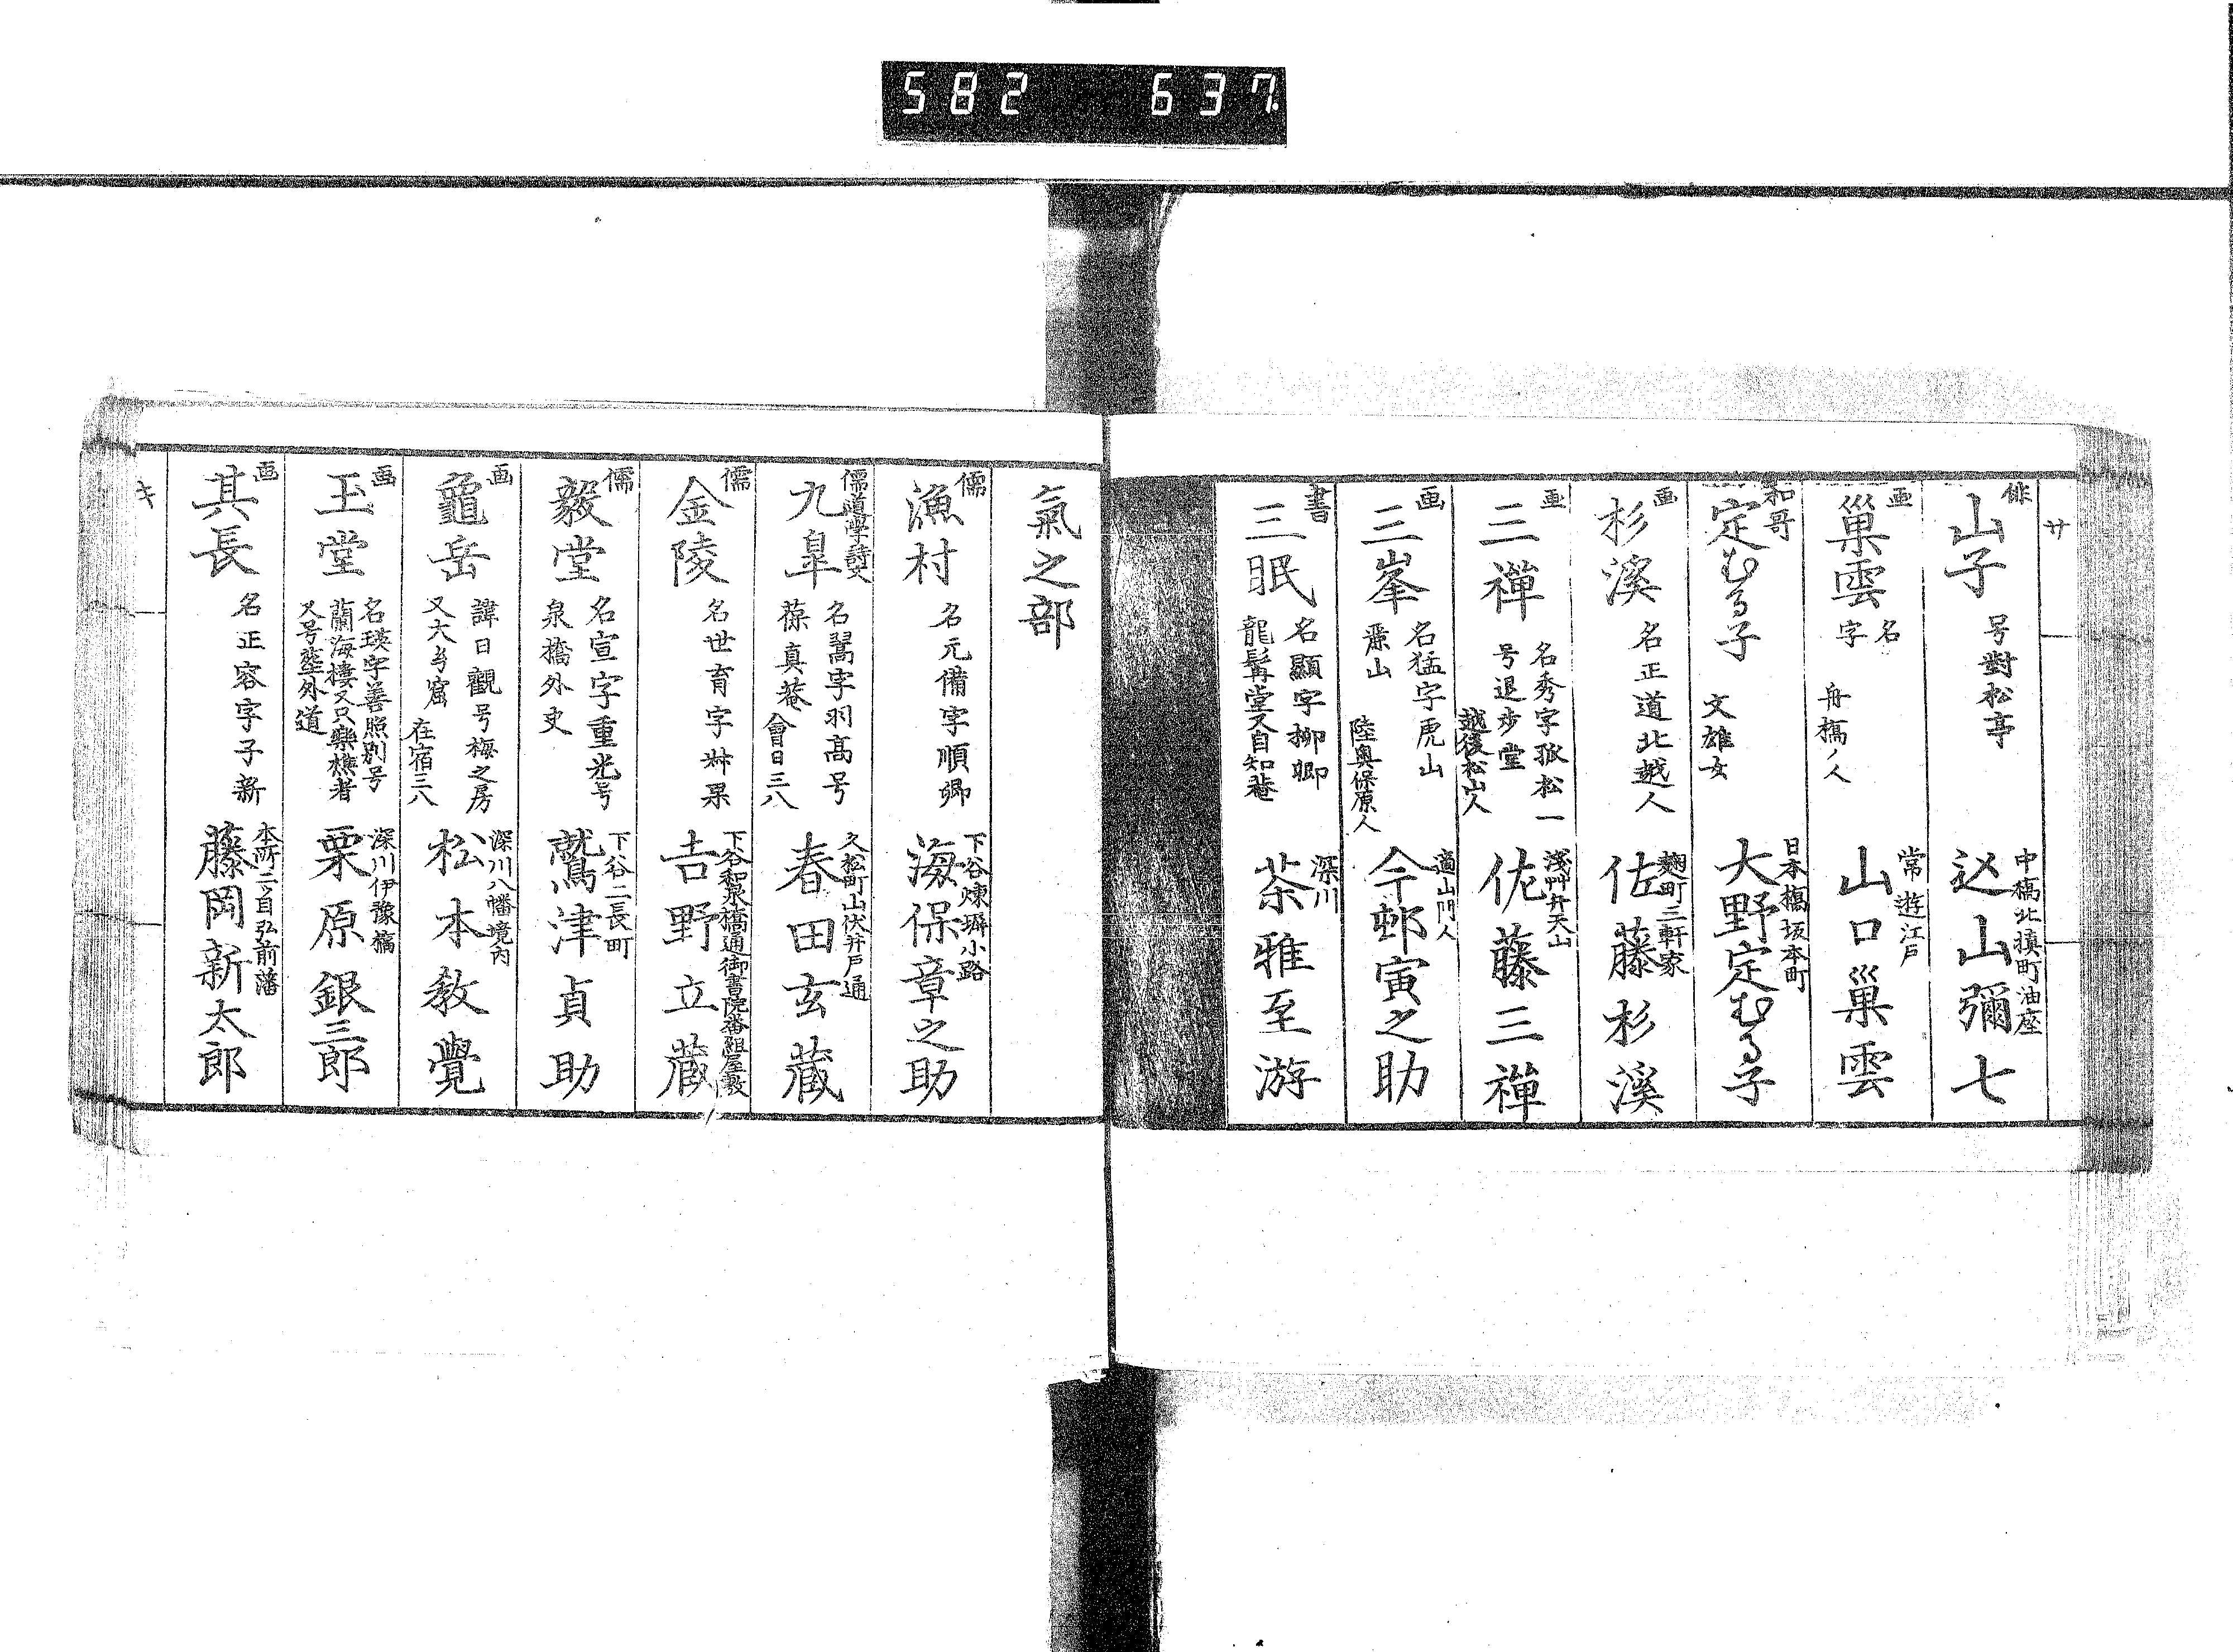 582 637
サ
俳
山子
号對松亭
中橋北槇町油座
山彌七
画
巣雲
名
字
舟橋ノ人
常遊江戸
山口巣雲
和哥
定むる子
文雄女
日本橋坂本町
大野定むる子
画
杉溪
名正道北越人
麹町三軒家
佐藤杉溪
画
三禅
名秀字孤松一
号退歩堂
越後松山人
浅艸弁天山
佐藤三禅
画
三峯
名猛字虎山
陸奥保原人
適山門人
今邨寅之助
書
三眠
名顯字柳卿
龍髯堂又自知菴
深川
茶雅至游
氣之部
儒
漁村
名元備字順卿
下谷煉塀小路
海保章之助
儒道学詩文
九皐
名翯字羽高号
葆真菴
會日三八
久松町山伏井戸通
春田玄蔵
儒
金陵
名世育字叔果
下谷和泉橋通御書院番組屋敷
吉野立蔵
儒
毅堂
名宣字重光号
泉橋外史
下谷二長町
鷲津貞助
画
龜岳
諱日觀号梅之房
又大弓窟
在宿三八
深川八幡境内
松本教覺
画
玉堂
名瑛字善照別号
蘭海樓又只樂樵者
又号埜外道
深川伊豫橋
栗原銀三郎
画
其長
名正容字子新
本所二ツ目弘前藩
藤岡新太郎
キ